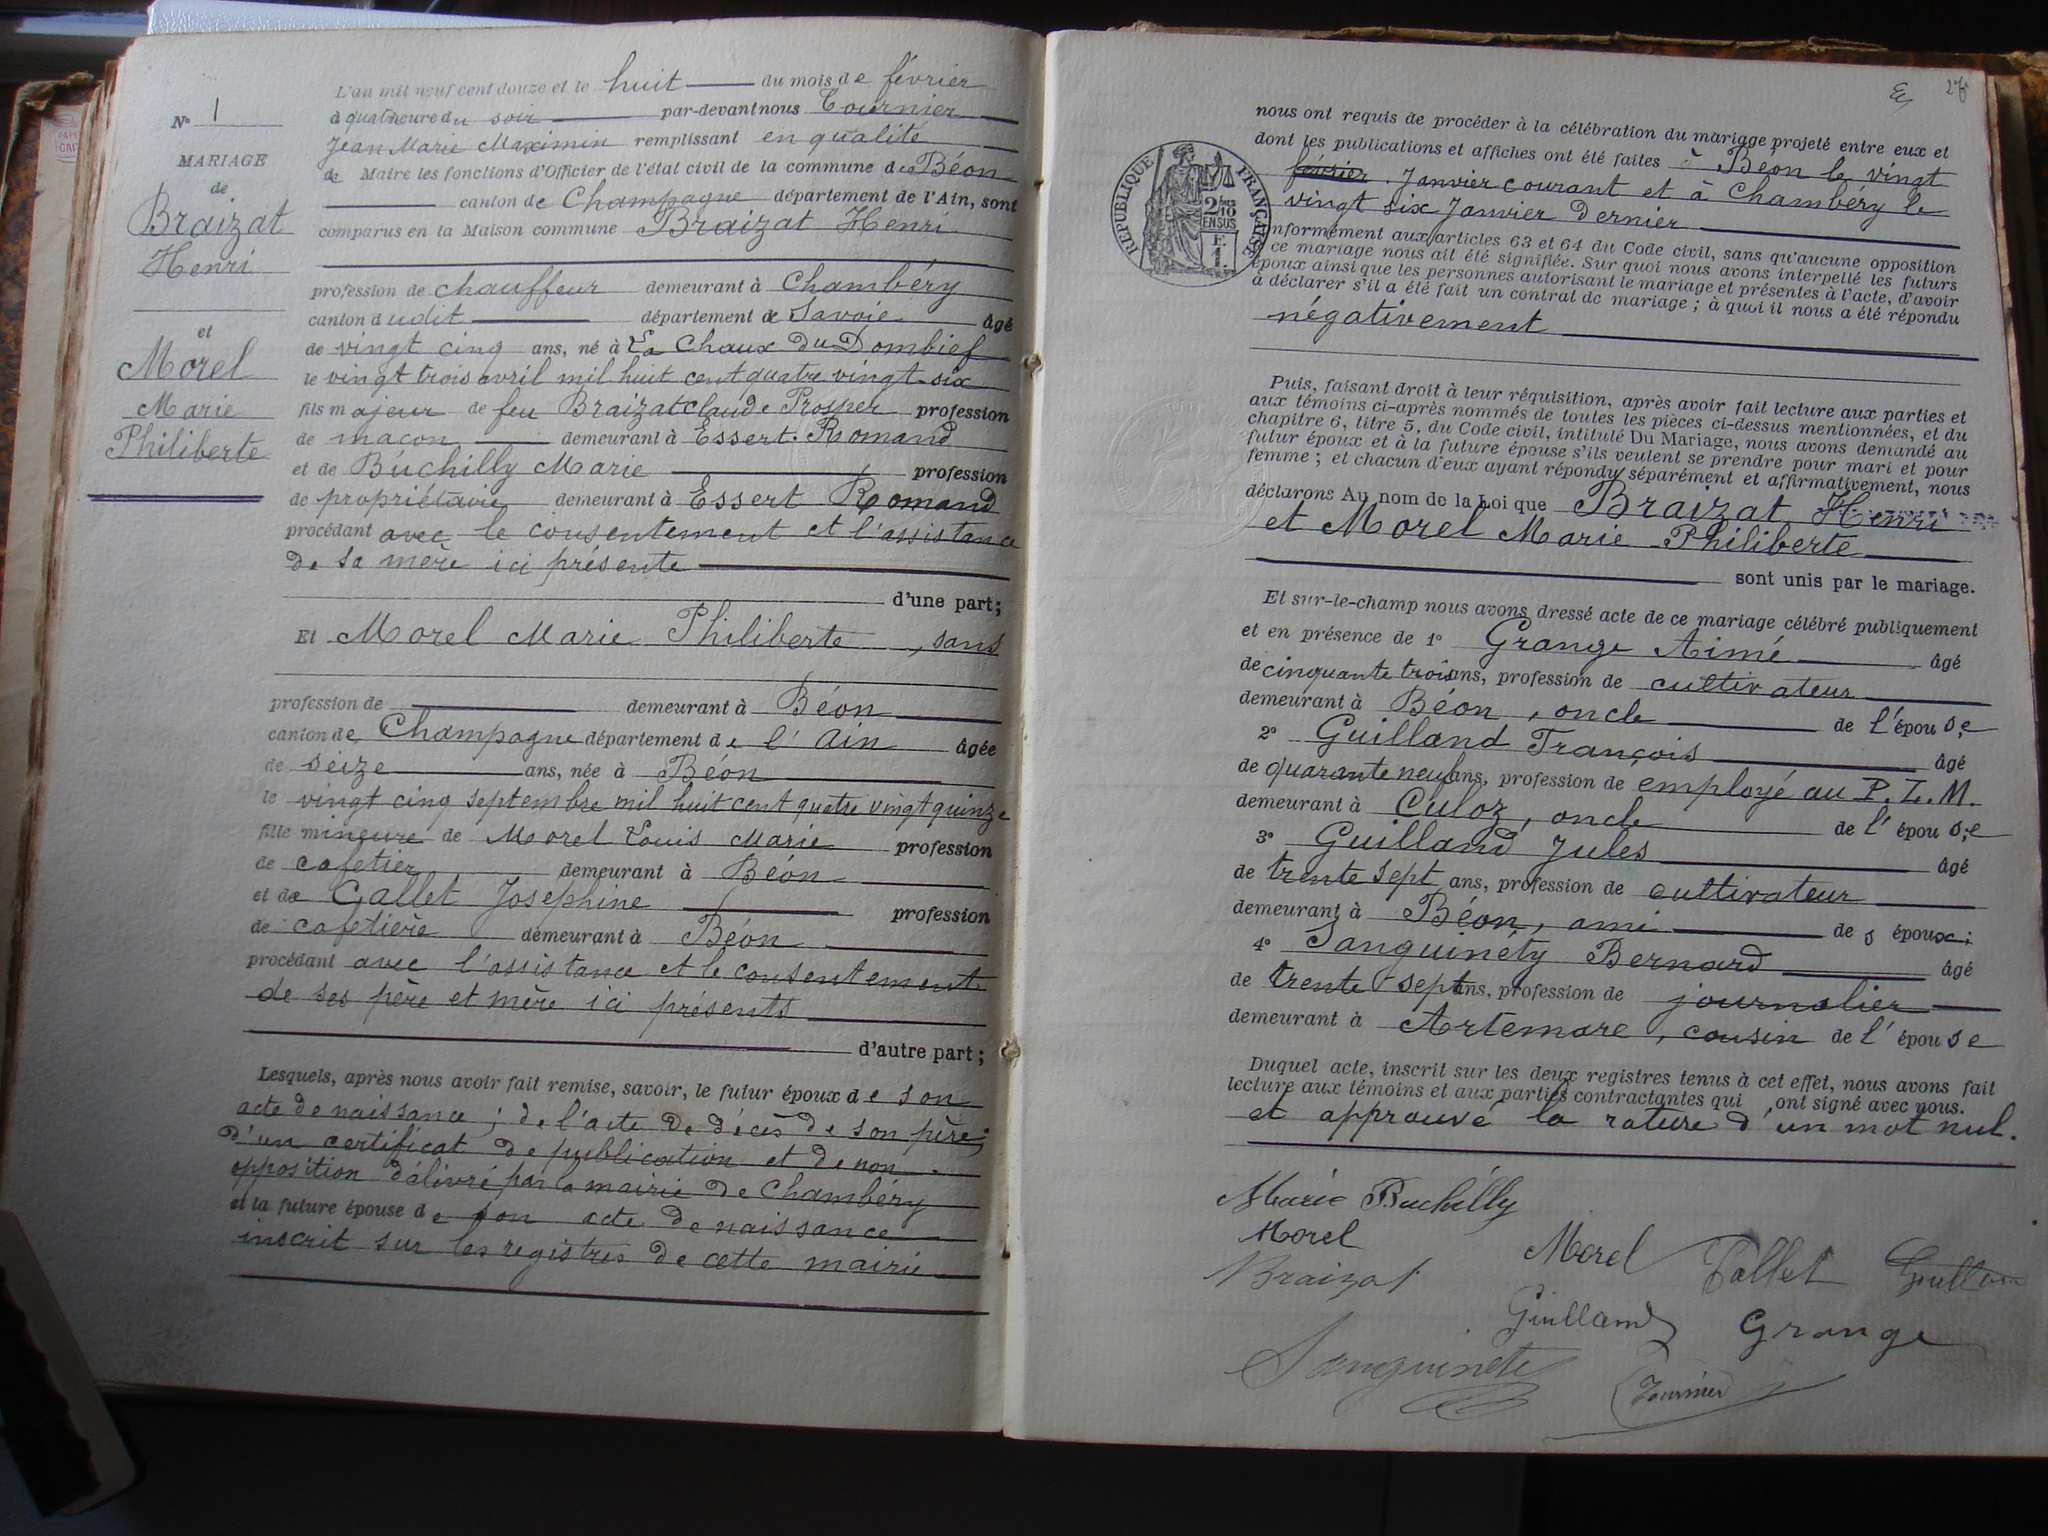 N° 1
MARIAGE
de
Braizat
Henri
et
Morel
Marie
Philiberte
L'an mil neuf cent douze et le huit du mois de février
à quatre heure du soir par-devant nous Tournier
Jean Marie Maximin remplissant en qualité
de Maire les fonctions d'Officier de l'état civil de la commune de Béon
canton de Champagne département de l'Ain, sont
comparus en la Maison commune Braizat Henri
profession de chauffeur demeurant à Chambéry
canton dudit département de Savoie âgé
de vingt cinq ans, né à La Chaux Du Dombief
le vingt trois avril mil huit cent quatre vingt-six
fils majeur de feu Braizat Claude Prosper profession
de maçon demeurant à Essert-Romand
et de Buchilly Marie profession
de propriétaire demeurant à Essert Romand
procédant avec le consentement et l'assistance
de sa mère ici présente
d'une part;
Et Morel Marie Philiberte, sans
profession de demeurant à Béon
canton de Champagne département de l'Ain âgée
de seize ans, née à Béon
le vingt cinq septembre mil huit cent quatre vingt quinze
fille mineure de Morel Louis Marie profession
de cafetier demeurant à Béon
et de Callet Josephine profession
de cafetière demeurant à Béon
procédant avec l'assistance et le consentement
de ses père et mère ici présents
d'autre part;
Lesquels, après nous avoir fait remise, savoir, le futur époux de son
acte de naissance; de l'acte de décès de son père;
d'un certificat de publication et de non-
opposition délivré par la mairie de Chambéry
et la future épouse de son acte de naissance
inscrit sur les registres de cette mairie
RÉPUBLIQUE FRANÇAISE
2/10
EN SUS
F.
1.
nous ont requis de procéder à la célébration du mariage projeté entre eux et
dont les publications et affiches ont été faites à Béon le vingt
février Janvier courant et à Chambéry le
vingt six Janvier dernier
nformément aux articles 63 et 64 du Code civil, sans qu'aucune opposition
ce mariage nous ait été signifiée. Sur quoi nous avons interpellé les futurs
époux ainsi que les personnes autorisant le mariage et présentes à l'acte, d'avoir
à déclarer s'il a été fait un contrat de mariage; à quoi il nous a été répondu
négativement
Puis, faisant droit à leur réquisition, après avoir fait lecture aux parties et
aux témoins ci-après nommés de toutes les pièces ci-dessus mentionnées, et du
chapitre 6, titre 5, du Code civil, intitulé Du Mariage, nous avons demandé au
futur époux et à la future épouse s'ils veulent se prendre pour mari et pour
femme; et chacun d'eux ayant répondu séparément et affirmativement, nous
déclarons Au nom de la Loi que Braizat Henri
et Morel Marie Philiberte
sont unis par le mariage.
Et sur-le-champ nous avons dressé acte de ce mariage célébré publiquement
et en présence de 1° Grange Aimé âgé
de cinquante trois ans, profession de cultivateur
demeurant à Béon, oncle de l'épouse
2° Guilland François âgé
de quarante neuf ans, profession de employé au P.L.M.
demeurant à Culoz, oncle de l'épouse
3° Guilland Jules âgé
de trente sept ans, profession de cultivateur
demeurant à Béon, ami de s époux;
4° Sanguinéty Bernard âgé
de trente-sept ans, profession de journalier
demeurant à Artemare, cousin de l'épouse
Duquel acte, inscrit sur les deux registres tenus à cet effet, nous avons fait
lecture aux témoins et aux parties contractantes qui ont signé avec nous.
et approuvé la rature d'un mot nul.
Marie Buchilly
Morel
Morel Callet
Braizat
Guilland Grange
Sanguinéti
Tournier